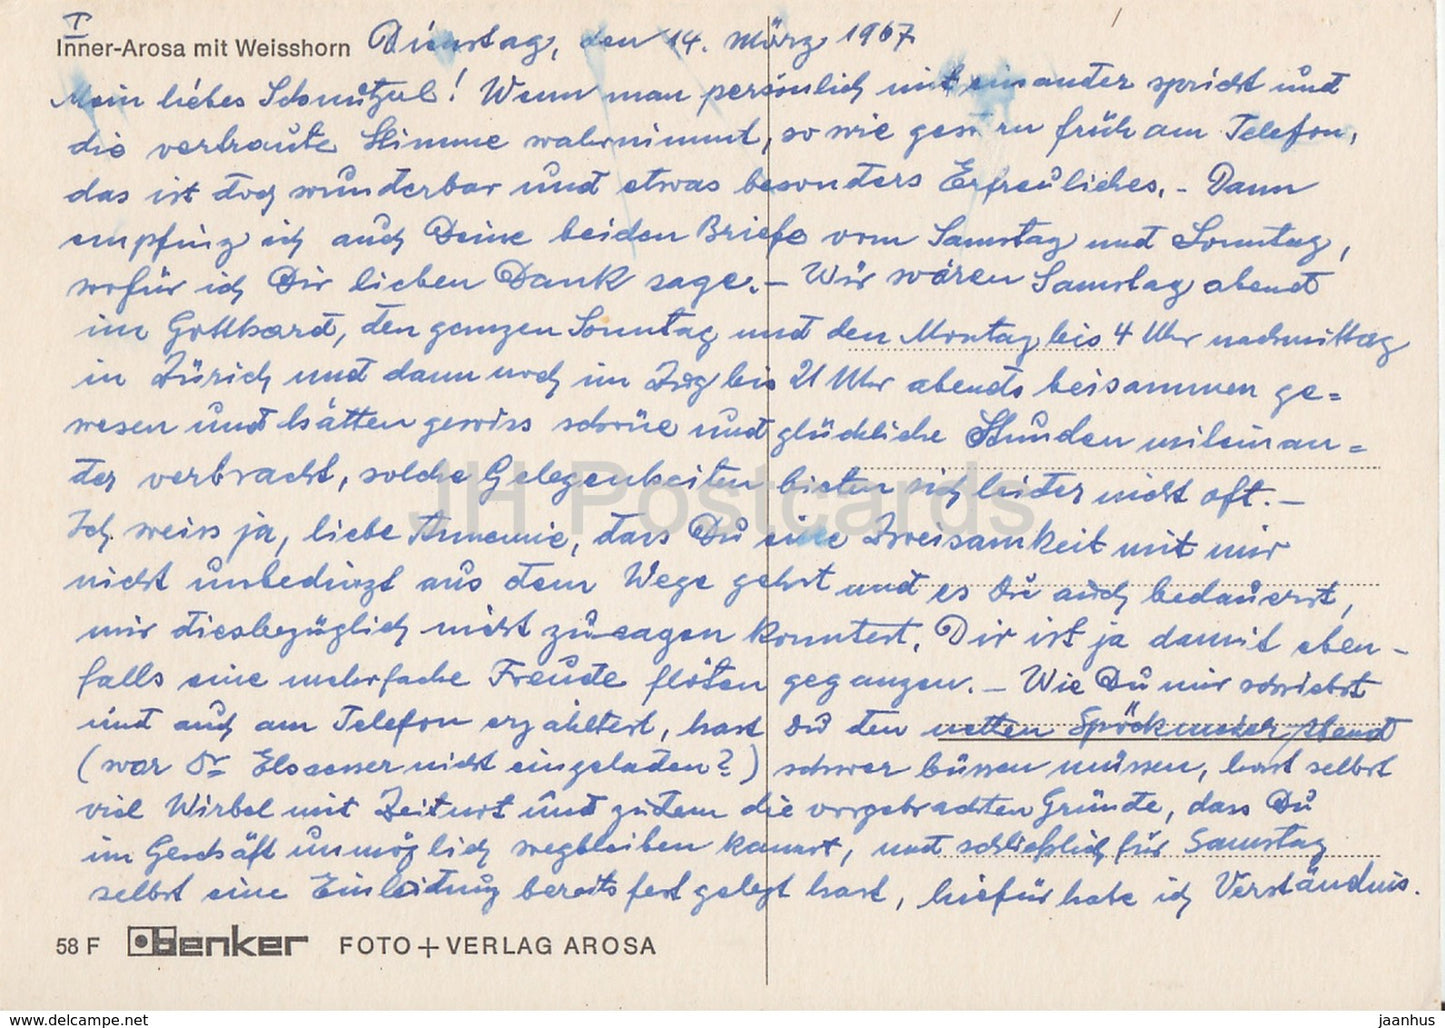 I
Inner-Arosa mit Weisshorn Dienstag, den 14. März 1967
Mein liebes Schnutzel! Wenn man persönlich mit einander spricht und
die vertraute Stimme wahrnimmt, so wie gestern früh am Telefon,
das ist doch wunderbar und etwas besonders Erfreuliches. - Dann
empfing ich auch Deine beiden Briefe vom Samstag und Sonntag,
wofür ich Dir lieben Dank sage. - Wir wären Samstag abend
im Gotthard, den ganzen Sonntag und den Montag bis 4 Uhr nachmittag
in Zürich und dann noch im Zug bis 21 Uhr abends beisammen ge=
wesen und hätten gewiss schöne und glückliche Stunden miteinan=
der verbracht, solche Gelegenheiten bieten sich leider nicht oft. -
Ich weiss ja, liebe Annemie, dass Du eine Zweisamkeit mit mir
nicht unbedingt aus dem Wege gehst und es Du auch bedauerst,
mir diesbezüglich nicht zusagen konntest. Dir ist ja damit eben-
falls eine mehrfache Freude flöten gegangen. - Wie Du mir schriebst
und auch am Telefon erzähltest, hast Du den netten Spöckmeier Abend
(war Dr Elsaesser nicht eingeladen?) schwer büssen müssen, hast selbst
viel Wirbel mit Zeitnot und zudem die vorgebrachten Gründe, dass Du
im Geschäft unmöglich wegbleiben kannst, und schließlich für Samstag
selbst eine Einladung bereits fest gelegt hast, hiefür habe ich Verständnis.
58 F benker FOTO + VERLAG AROSA
JH Postcards
https://www.delcampe.net/en_US/collectibles jaanhus